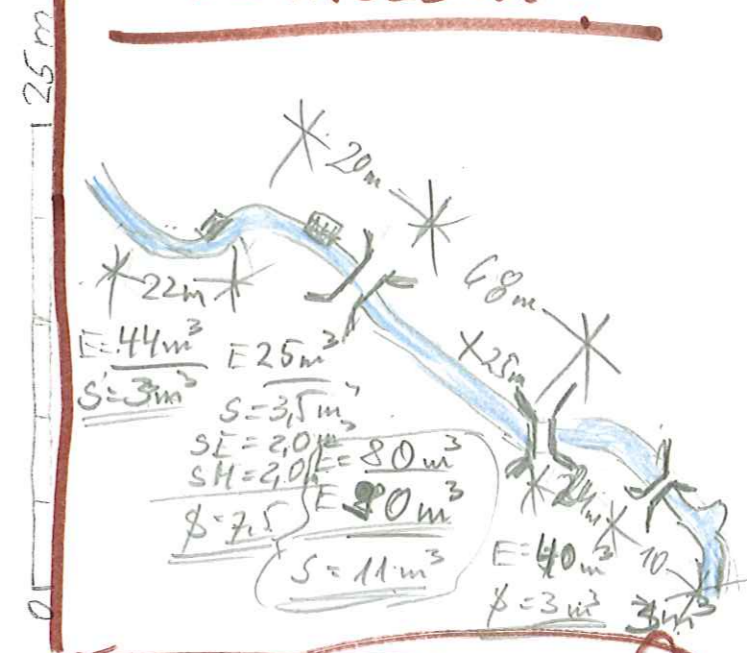 25 m
20 m
48 m
22 m
25 m
E=44 m³
S=3 m³
E 25 m³
S=3,5 m³
SE=2,0 m³
SH=2,0
S=7,5
E=80 m³
E 90 m³
S=11 m³
24 m
E=40 m³
S=3 m³
10
3 m³
0